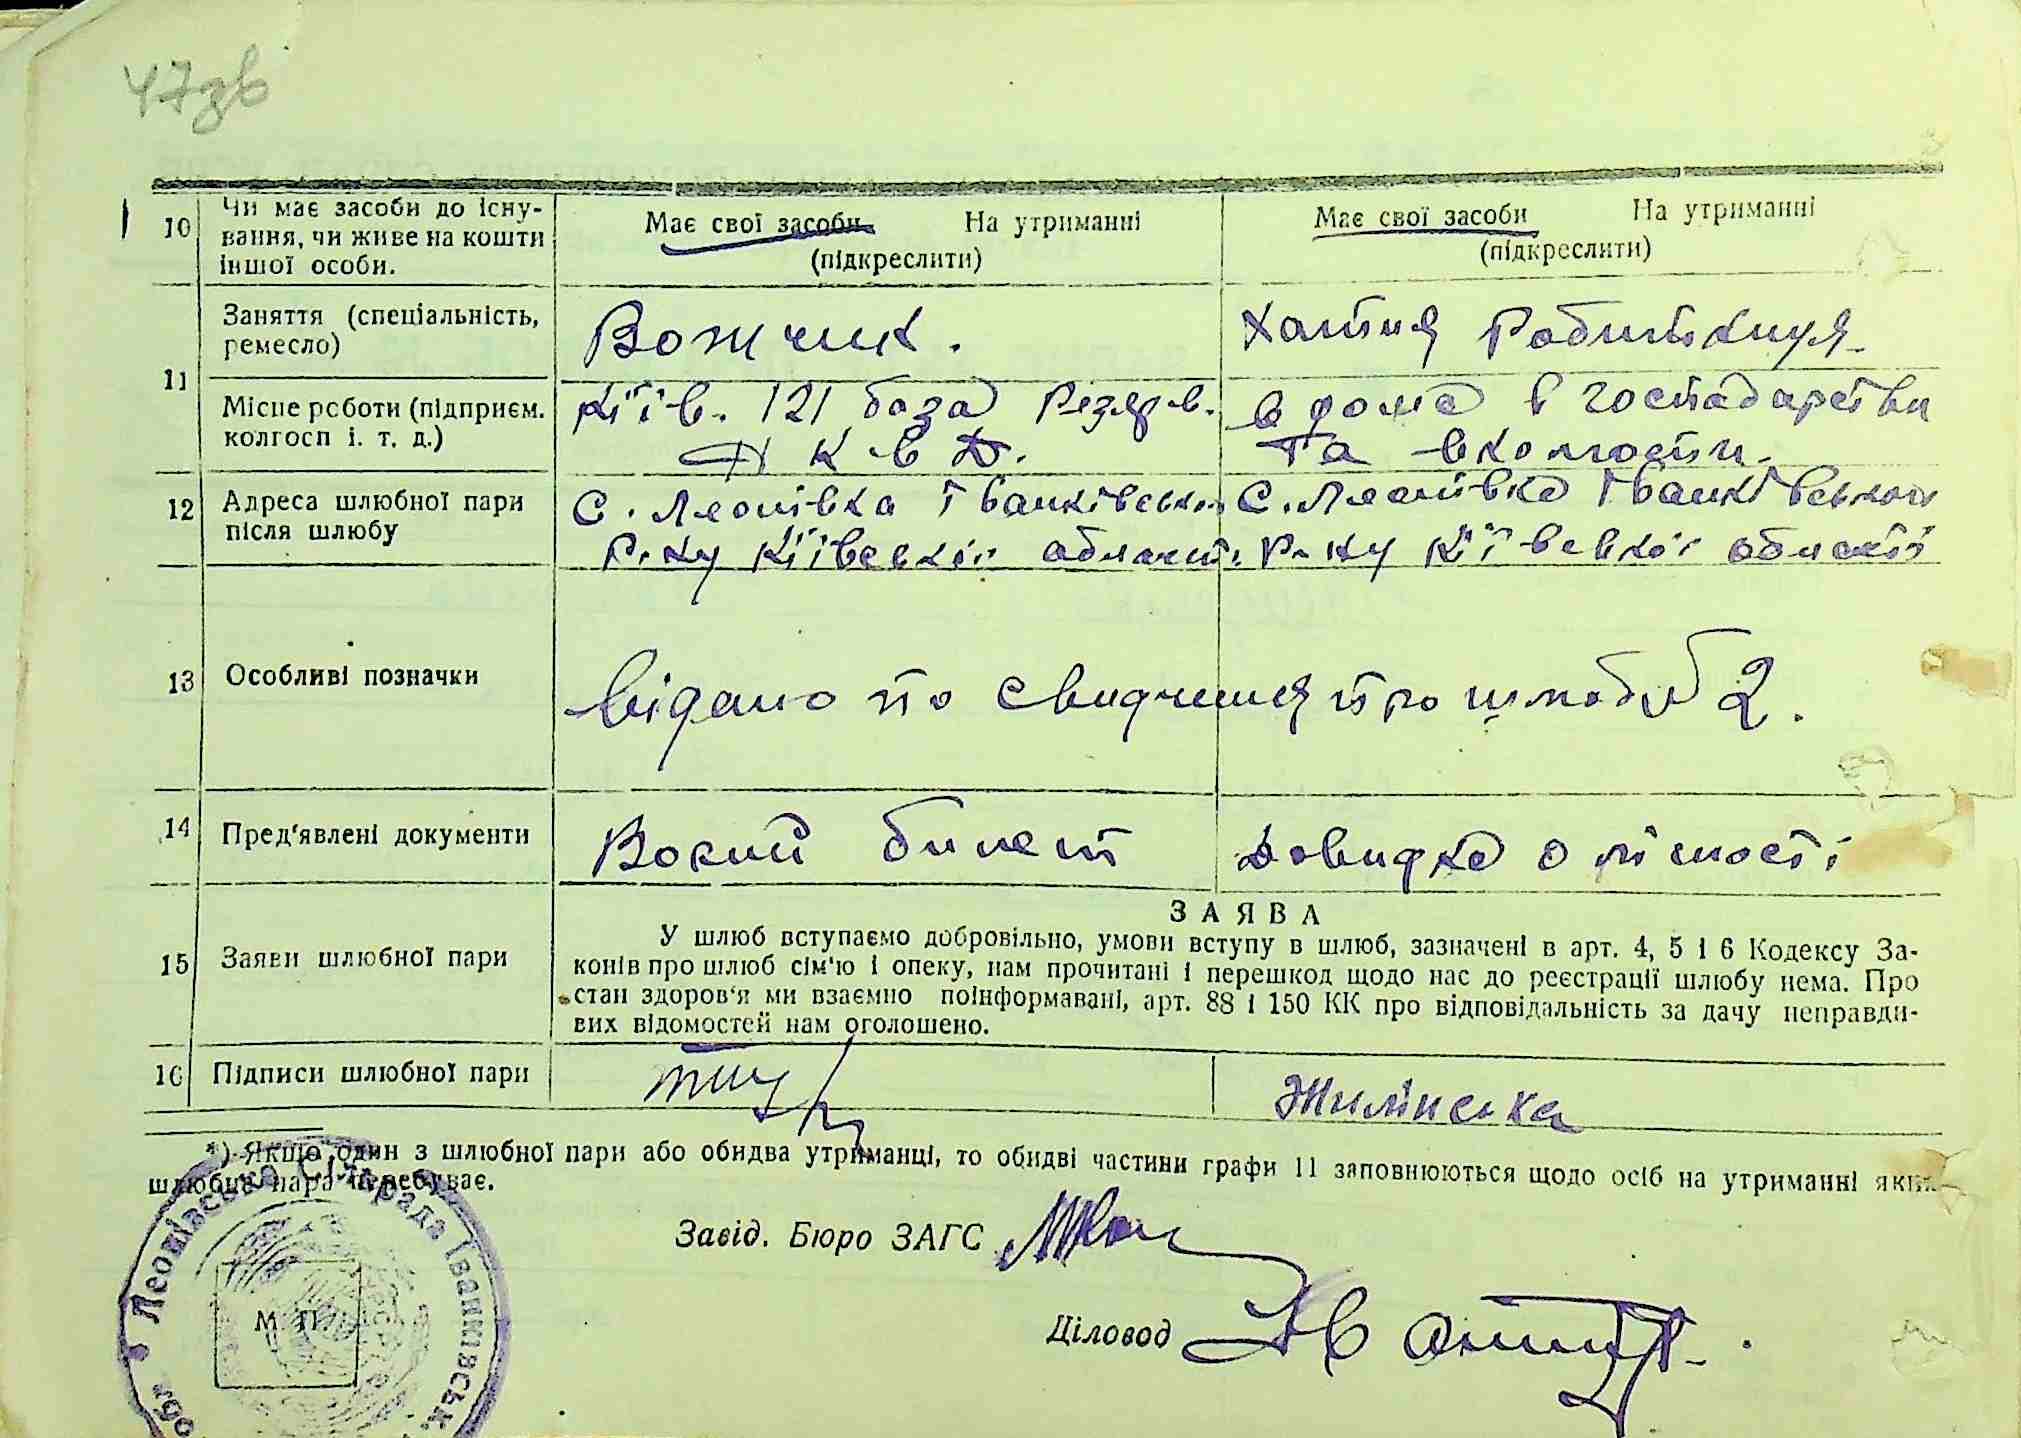 47зв
10 Чи має засоби до існу-
вання, чи живе на кошти
іншої особи.
Має свої засоби На утриманні
(підкреслити)
Має свої засоби На утриманні
(підкреслити)
11 Заняття (спеціальність,
ремесло)
Вожчик.
Хатня Робитниця
Місце роботи (підприєм.
колгосп і. т. д.)
Київ. 121 база Резерв.
Н К В Д.
в дома в господарстви
та
12 Адреса шлюбної пари
після шлюбу
С. Леонівка Іванківськ
Р-ку Київської области.
С. Леонівка Іванківського
Р-ну Київської области
13 Особливі позначки
Відано по свидчения про шлюб 2.
14 Пред'явлені документи
Воєний билет
Довидка о лічності
15 Заяви шлюбної пари
ЗАЯВА
У шлюб вступаємо добровільно, умови вступу в шлюб, зазначені в арт. 4, 5 і 6 Кодексу За-
конів про шлюб сім'ю і опеку, нам прочитані і перешкод щодо нас до реєстрації шлюбу нема. Про
стан здоров'я ми взаємно поінформавані, арт. 88 і 150 КК про відповідальність за дачу неправди-
вих відомостей нам оголошено.
16 Підписи шлюбної пари
Жилінська
*) Якщо один з шлюбної пари або обидва утриманці, то обидві частини графи 11 заповнюються щодо осіб на утриманні яких
шлюбна пара перебуває.
Завід. Бюро ЗАГС
Діловод
М. П.
Леонівська Сільрада Іванківськ.